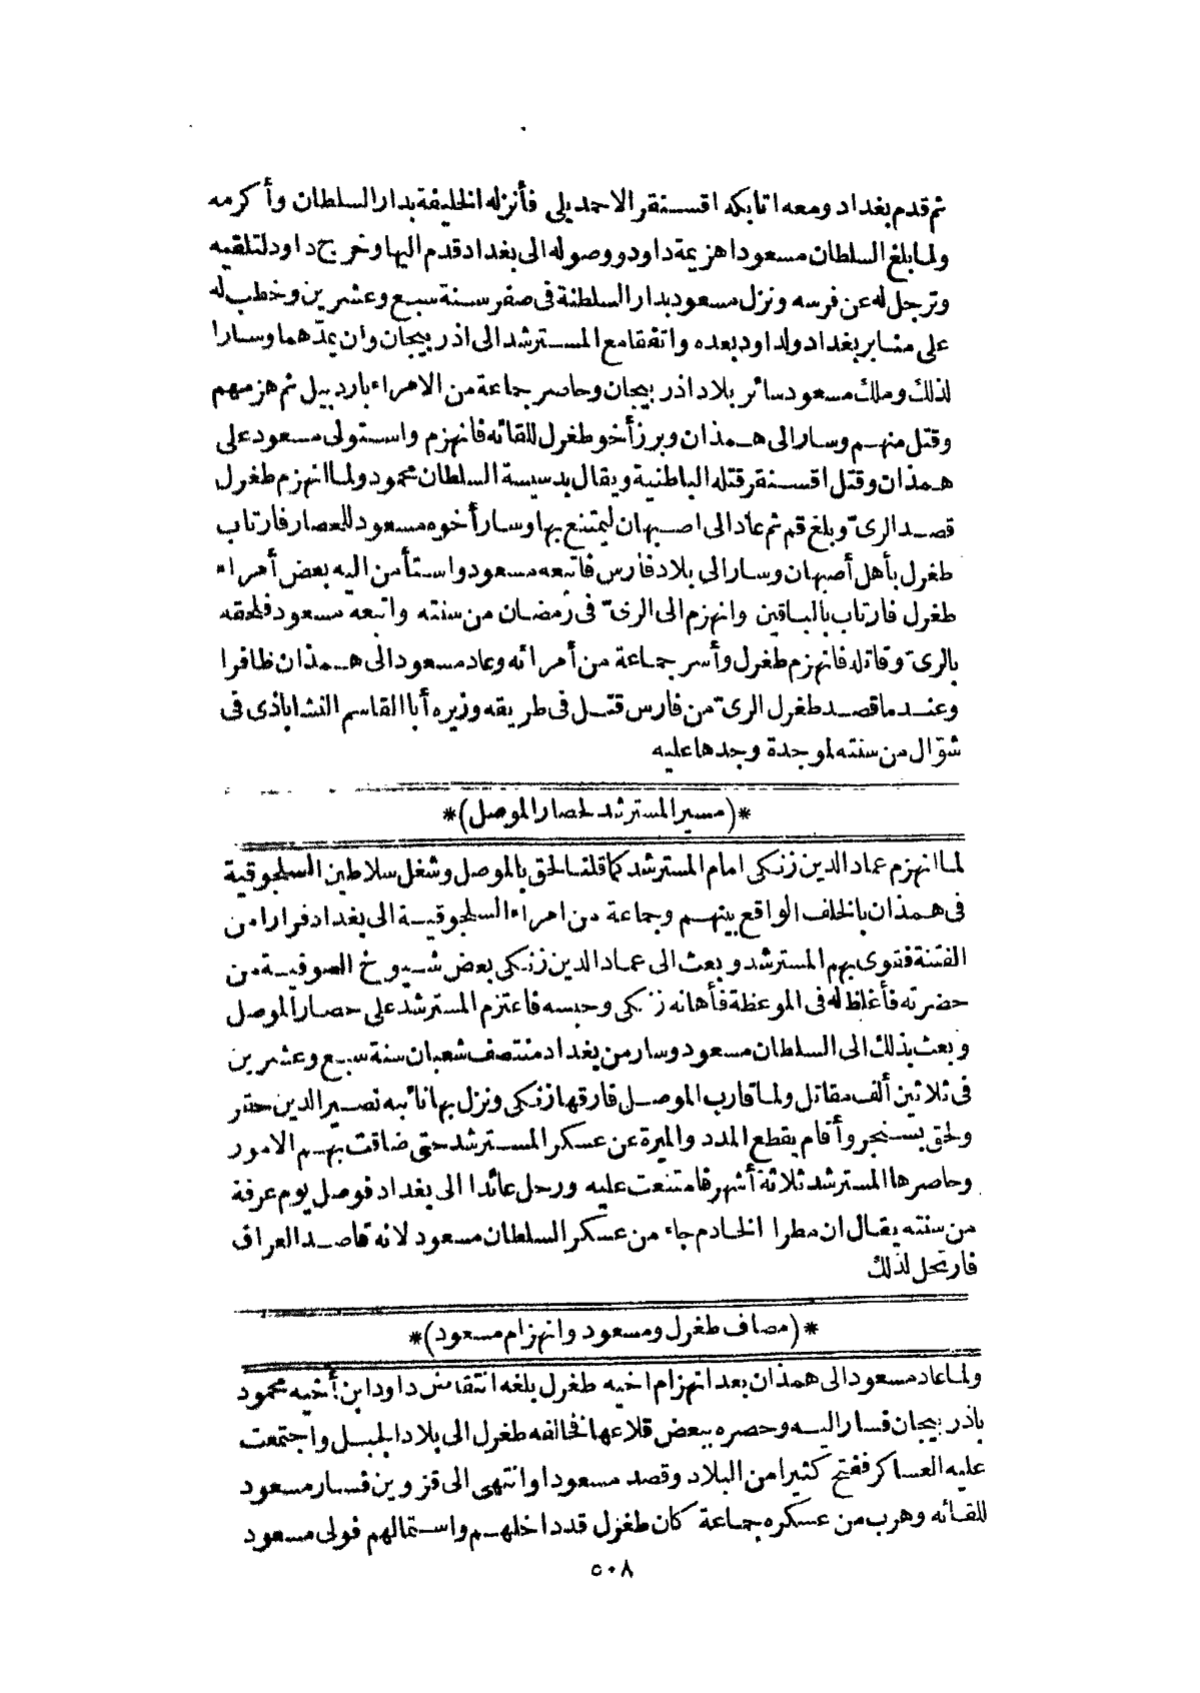 ثم قدم بغداد ومعه اتابكه اقسنقر الاحمديلى فأنزله الخليفة بدار السلطان وأكرمه
ولما بلغ السلطان مسعودا هزيمة داود ووصوله الى بغداد قدم اليها وخرج داود لتلقيه
وترجل له عن فرسه ونزل مسعود بدار السلطنة فى صفر سنة سبع وعشرين وخطب له
على منابر بغداد ولداود بعده واتفقا مع المسترشد الى اذربيجان وان يمدّهما وسارا
لذلك وملك مسعود سائر بلاد اذربيجان وحاصر جماعة من الامراء باردبيل ثم هزمهم
وقتل منهم وسار الى همذان وبرز أخو طغرل للقائه فانهزم واستولى مسعود على
همذان وقتل اقسنقر قتله الباطنية ويقال بدسيسة السلطان محمود ولما انهزم طغرل
قصد الرىّ وبلغ قم ثم عاد الى اصبهان ليمتنع بها وسار أخوه مسعود للحصار فارتاب
طغرل بأهل أصبهان وسار الى بلاد فارس فاتبعه مسعود واستأمن اليه بعض أمراء
طغرل فارتاب بالباقين وانهزم الى الرىّ فى رمضان من سنته واتبعه مسعود فلحقه
بالرىّ وقاتله فانهزم طغرل وأسر جماعة من أمرائه وعاد مسعود الى همذان ظافرا
وعندما قصد طغرل الرىّ من فارس قتل فى طريقه وزيره أبا القاسم النشاباذى فى
شوّال من سنته لموجدة وجدها عليه
*(مسير المسترشد لحصار الموصل)*
لما انهزم عماد الدين زنكى امام المسترشد كما قلنا لحق بالموصل وشغل سلاطين السلجوقية
فى همذان بالخلف الواقع بينهم وجماعة من امراء السلجوقية الى بغداد فرارا من
الفتنة فقوى بهم المسترشد وبعث الى عماد الدين زنكى بعض شيوخ الصوفية من
حضرته فأغلظ له فى الموعظة فأهانه زنكى وحبسه فاعتزم المسترشد على حصار الموصل
وبعث بذلك الى السلطان مسعود وسار من بغداد منتصف شعبان سنة سبع وعشرين
فى ثلاثين ألف مقاتل ولما قارب الموصل فارقها زنكى ونزل بها نائبه نصير الدين جقر
ولحق بسنجر وأقام يقطع المدد والميرة عن عسكر المسترشد حتى ضاقت بهم الامور
وحاصرها المسترشد ثلاثة أشهر فامتنعت عليه ورحل عائدا الى بغداد فوصل يوم عرفة
من سنته يقال ان مطرا الخادم جاء من عسكر السلطان مسعود لانه قاصد العراق
فارتحل لذلك
*(مصاف طغرل ومسعود وانهزام مسعود)*
ولما عاد مسعود الى همذان بعد انهزام اخيه طغرل بلغه انتقاض داود ابن أخيه محمود
باذربيجان فسار اليه وحصره ببعض قلاعها فخالفه طغرل الى بلاد الجبل واجتمعت
عليه العساكر ففتح كثيرا من البلاد وقصد مسعودا وانتهى الى قزوين فسار مسعود
للقائه وهرب من عسكره جماعة كان طغرل قد داخلهم واستمالهم فولى مسعود
٥٠٨